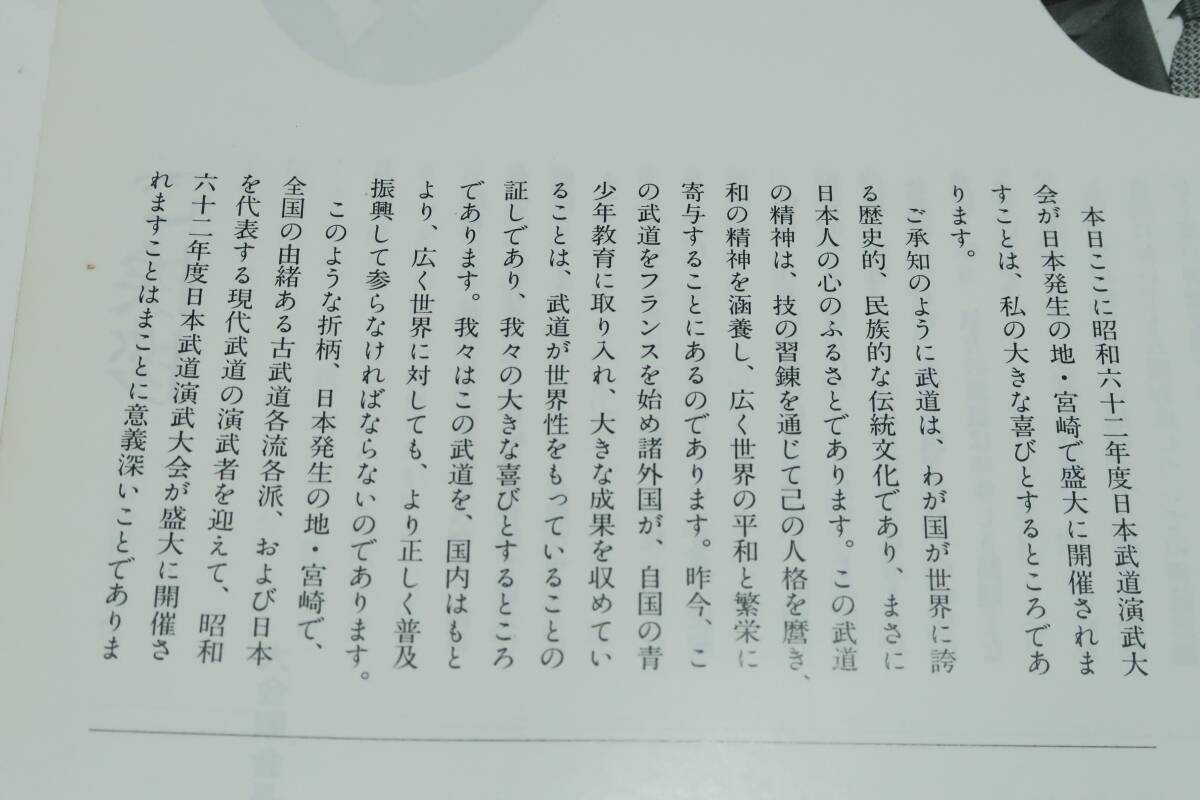 本日ここに昭和六十二年度日本武道演武大
会が日本発生の地・宮崎で盛大に開催されま
すことは、私の大きな喜びとするところであ
ります。
ご承知のように武道は、わが国が世界に誇
る歴史的、民族的な伝統文化であり、まさに
日本人の心のふるさとであります。この武道
の精神は、技の習錬を通じて己の人格を麿き、
和の精神を涵養し、広く世界の平和と繁栄に
寄与することにあるのであります。昨今、こ
の武道をフランスを始め諸外国が、自国の青
少年教育に取り入れ、大きな成果を収めてい
ることは、武道が世界性をもっていることの
証しであり、我々の大きな喜びとするところ
であります。我々はこの武道を、国内はもと
より、広く世界に対しても、より正しく普及
振興して参らなければならないのであります。
このような折柄、日本発生の地・宮崎で、
全国の由緒ある古武道各流各派、および日本
を代表する現代武道の演武者を迎えて、昭和
六十二年度日本武道演武大会が盛大に開催さ
れますことはまことに意義深いことでありま